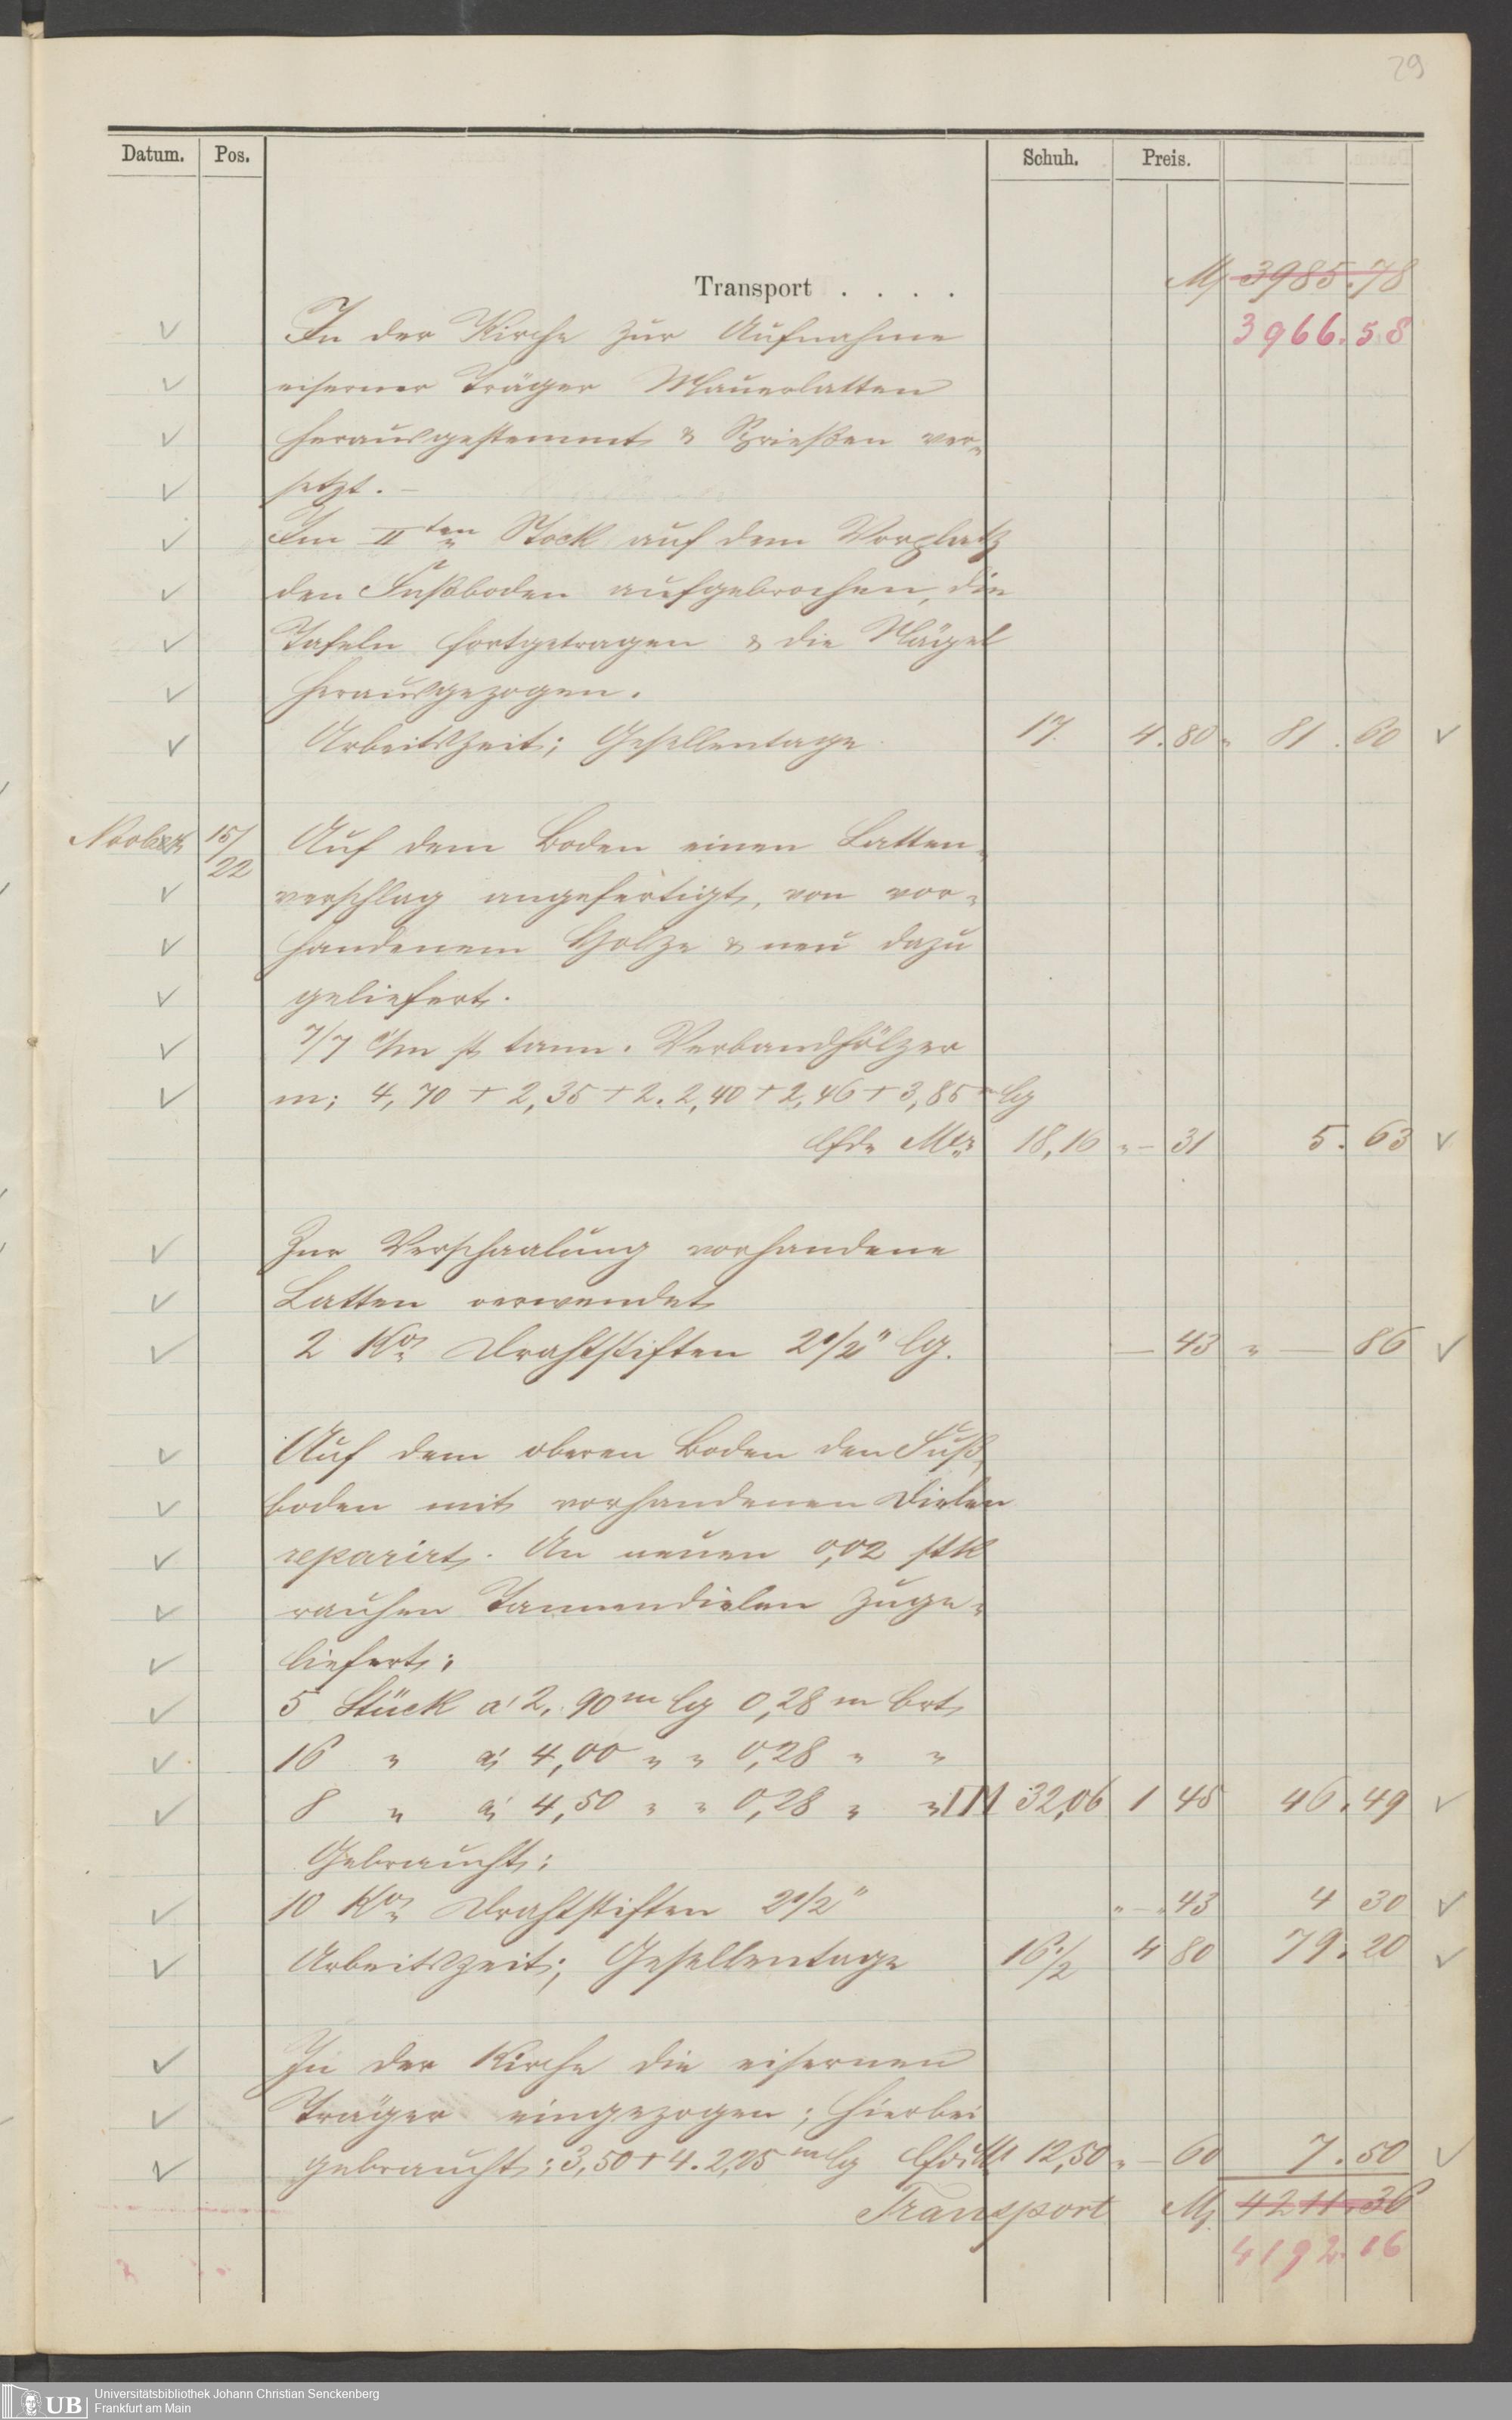 29
Datum. Pos. Schuh. Preis.
Transport . . . . M 3985.78
3966.58
In der Kirche zur Aufnahme
eiserner Träger Mauerlatten
herausgestemmt & Sprießen ver-
setzt. –
Im II ten Stock auf dem Vorplatz
den Fußboden aufgebrochen, die
Tafeln fortgetragen & die Nägel
herausgezogen.
Arbeitszeit; Gesellentage 17. 4.80 81.60
Novbr 15/22 Auf dem Boden einen Latten-
verschlag angefertigt, von vor-
handenem Holze & neu dazu
geliefert.
7/7 c/m st tann. Verbandhölzer
m; 4,70 + 2,35 + 2. 2,40 + 2,46 + 3,85 m lg
lfde Mtr 18,16 " – 31 5.63
Zur Verschaalung vorhandene
Latten verwendet
2 Ko Drahtstiften 2 1/2" lg. — 43 " — 86
Auf dem oberen Boden den Fuß-
boden mit vorhandenen Dielen
reparirt. An neuen 0,02 stk
rauhen Tannendielen zuge-
liefert;
5 Stück a' 2,90 m lg 0,28 m brt
16 " a' 4,00 " " 0,28 " "
8 " a' 4,50 " " 0,28 " " □M 32,06 1 45 46.49
Gebraucht;
10 Ko Drahtstiften 2 1/2" " – 43 4 30
Arbeitszeit; Gesellentage 16 1/2 4 80 79.20
In der Kirche die eisernen
Träger eingezogen; hierbei
gebraucht; 3,50 + 4. 2,25 m lg lfd M 12,50 " – 60 7.50
Transport M 4211.36
4192.16
UB Universitätsbibliothek Johann Christian Senckenberg
Frankfurt am Main